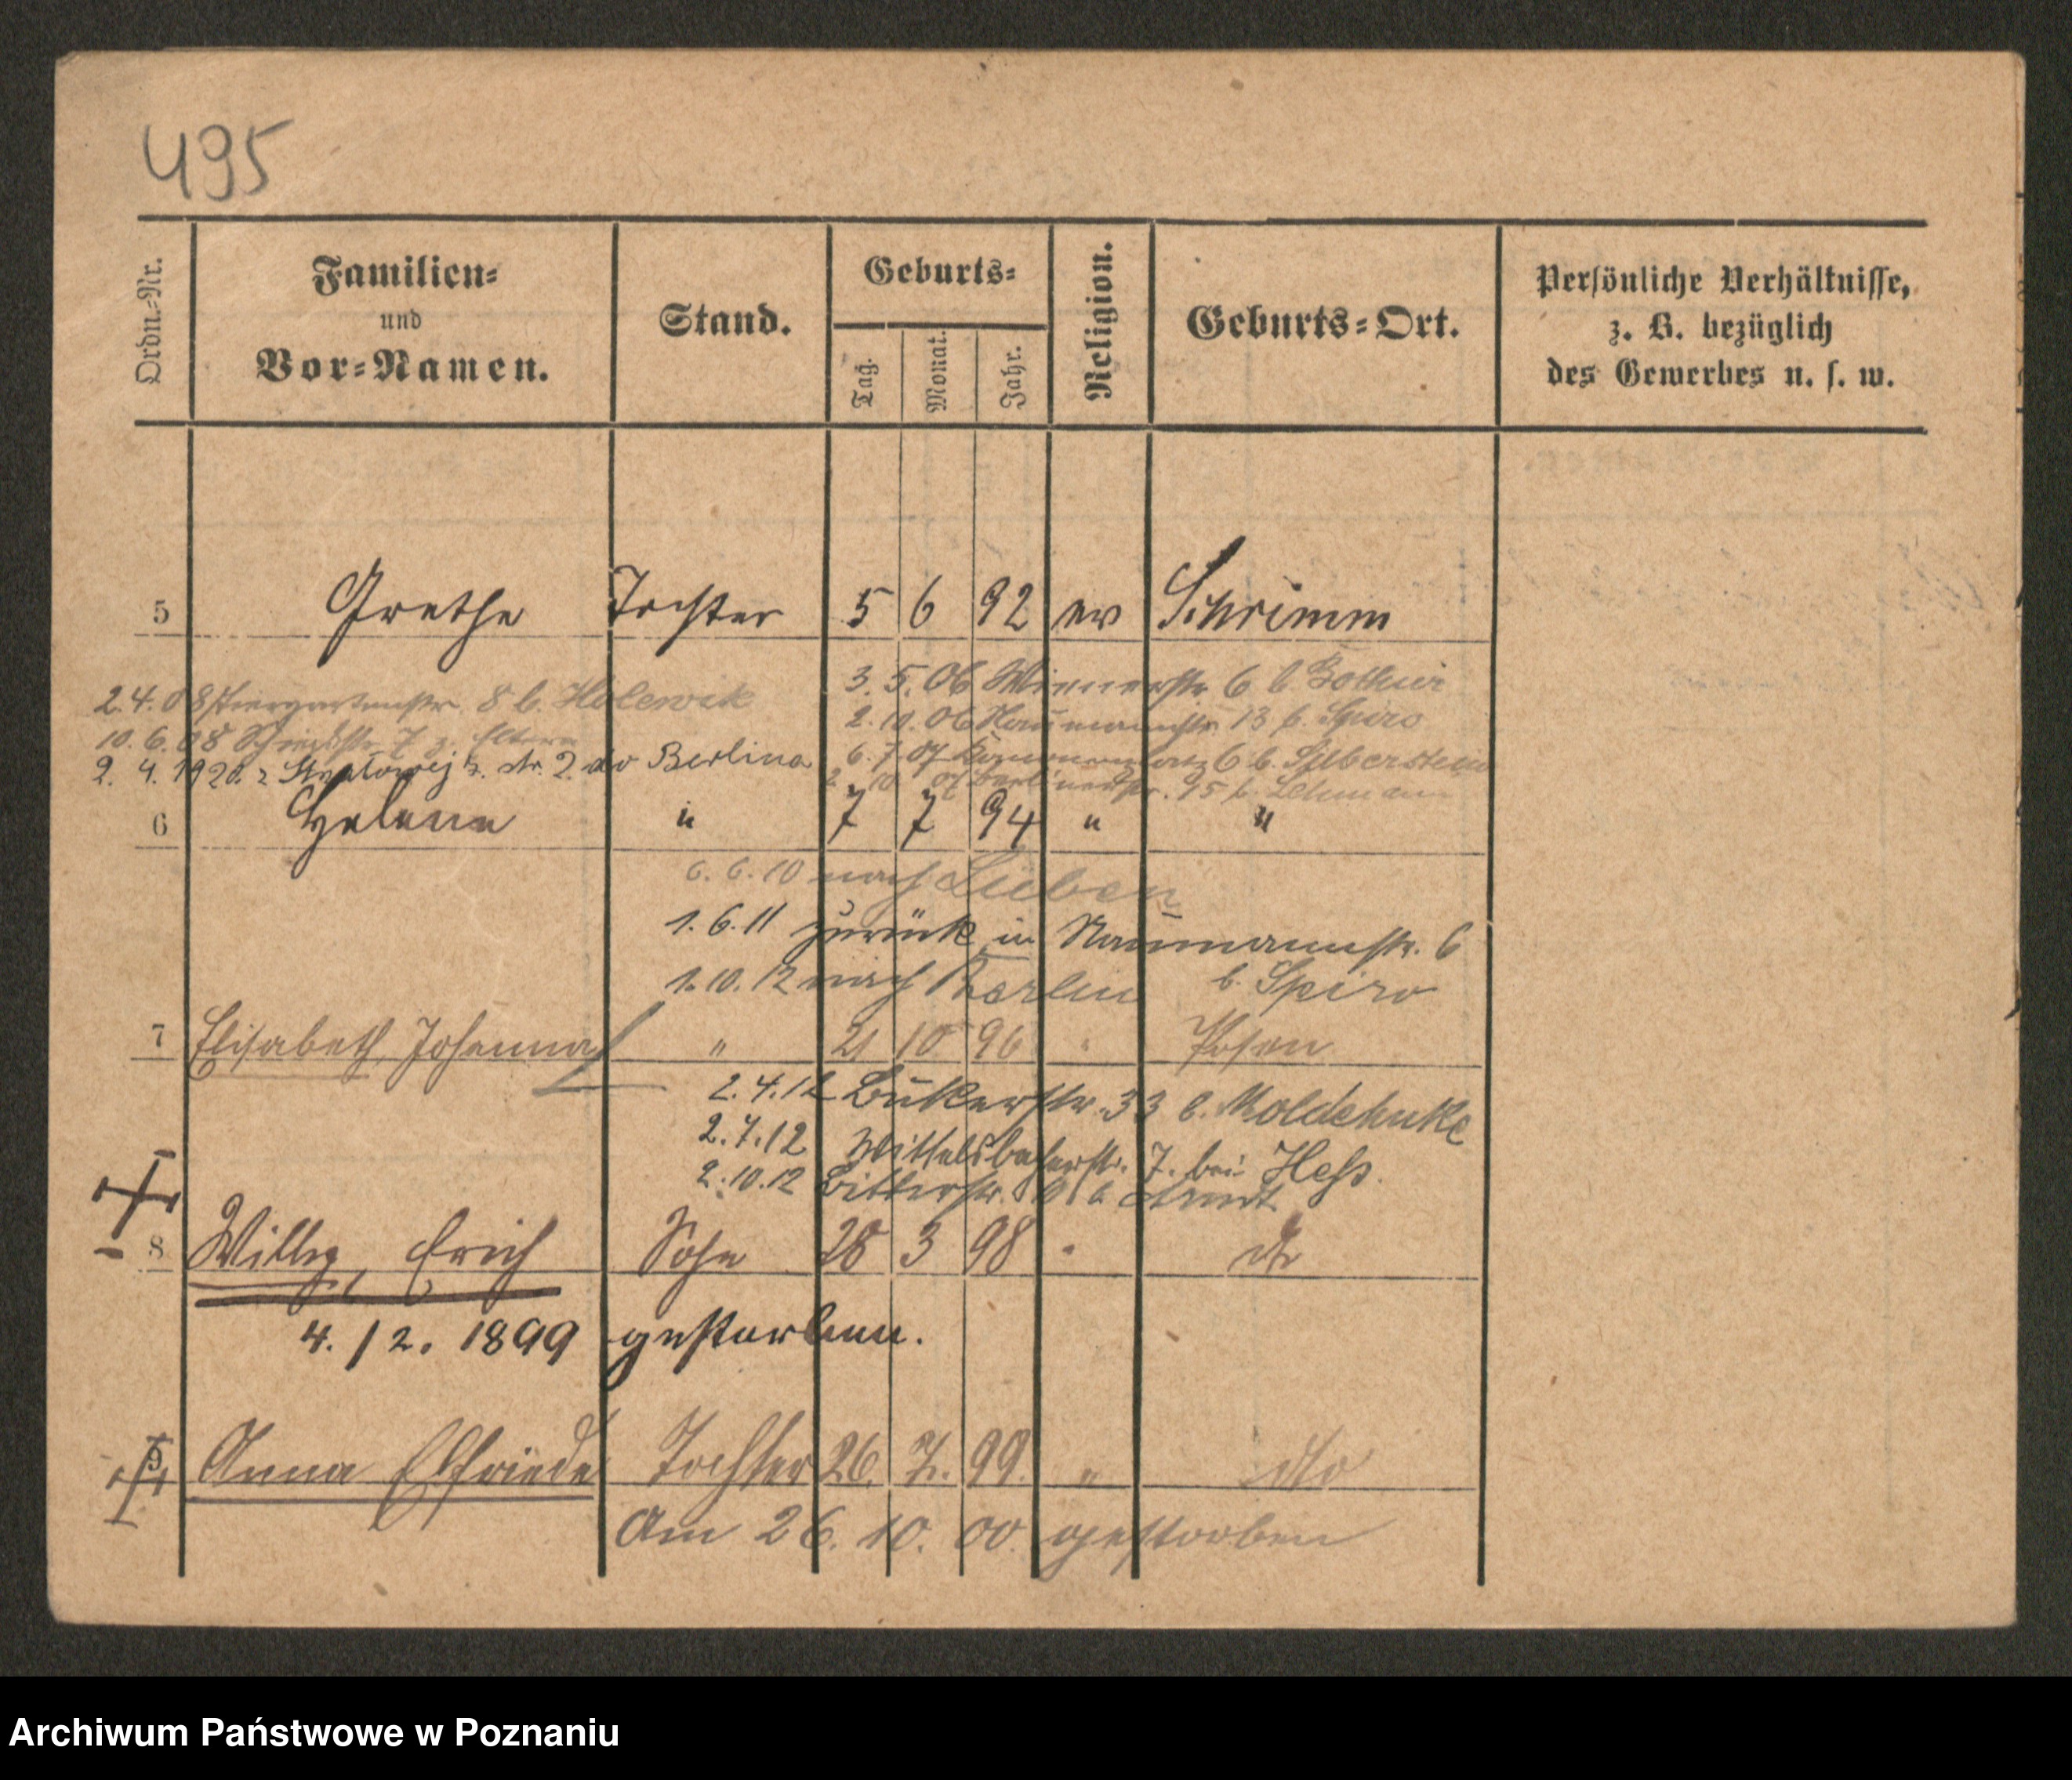 495
Ordn.-Nr.
Familien-
und
Vor-Namen.
Stand.
Geburts-
Tag.
Monat.
Jahr.
Religion.
Geburts-Ort.
Persönliche Verhältnisse,
z. B. bezüglich
des Gewerbes u. s. w.
5 Grethe Tochter 5 6 92 ev Schrimm
3. 5. 06 Wienerstr 6 b.
2. 4. 08 Tiergartenstr. 8 b. Holewik
2. 10. 06 Naumannstr. 13 b. Spiro
10. 6. 08 7 z. Eltern
6. 7 07 6 b. Silberstein
2. 4. 1920. z 2. do Berlina
2 10 07 Berlinerstr. b. Lehmann
6 Helene " 7 7 94 " "
6. 6. 10 nach Lüben
1. 6. 11 zurück in Naumannstr. 6
b. Spiro
1. 10. 12 nach Berlin
7 Elisabeth, Johanna " 21 10 96 " Posen
2. 4. 12 Bukerstr. 33 b. Moldehnke
2. 7. 12 Wittelsbacherstr. 7. bei Heß.
2. 10. 12 Bitterstr. b Arndt
8 Willy, Erich Sohn 28 3 98 " do
4. / 2. 1899 gestorben.
9 Anna Elfriede Tochter 26. 7. 99. " dto
Am 26. 10. 00. gestorben
Archiwum Państwowe w Poznaniu